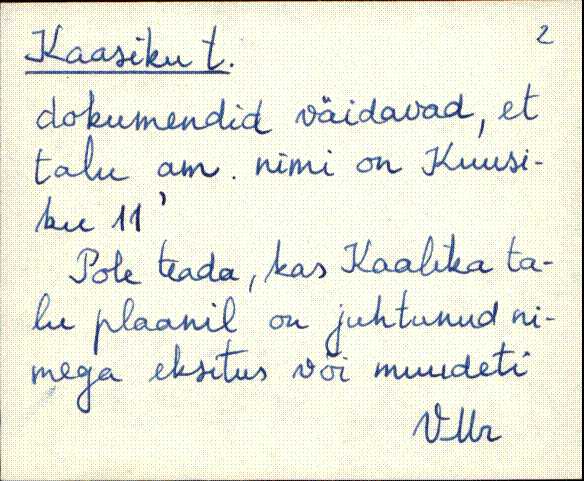 Kaasiku t.
2
dokumendid väidavad, et
talu am. nimi on Kuusi-
ku 11'
Pole teada, kas Kaalika ta-
lu plaanil on juhtunud ni-
mega eksitus või muudeti